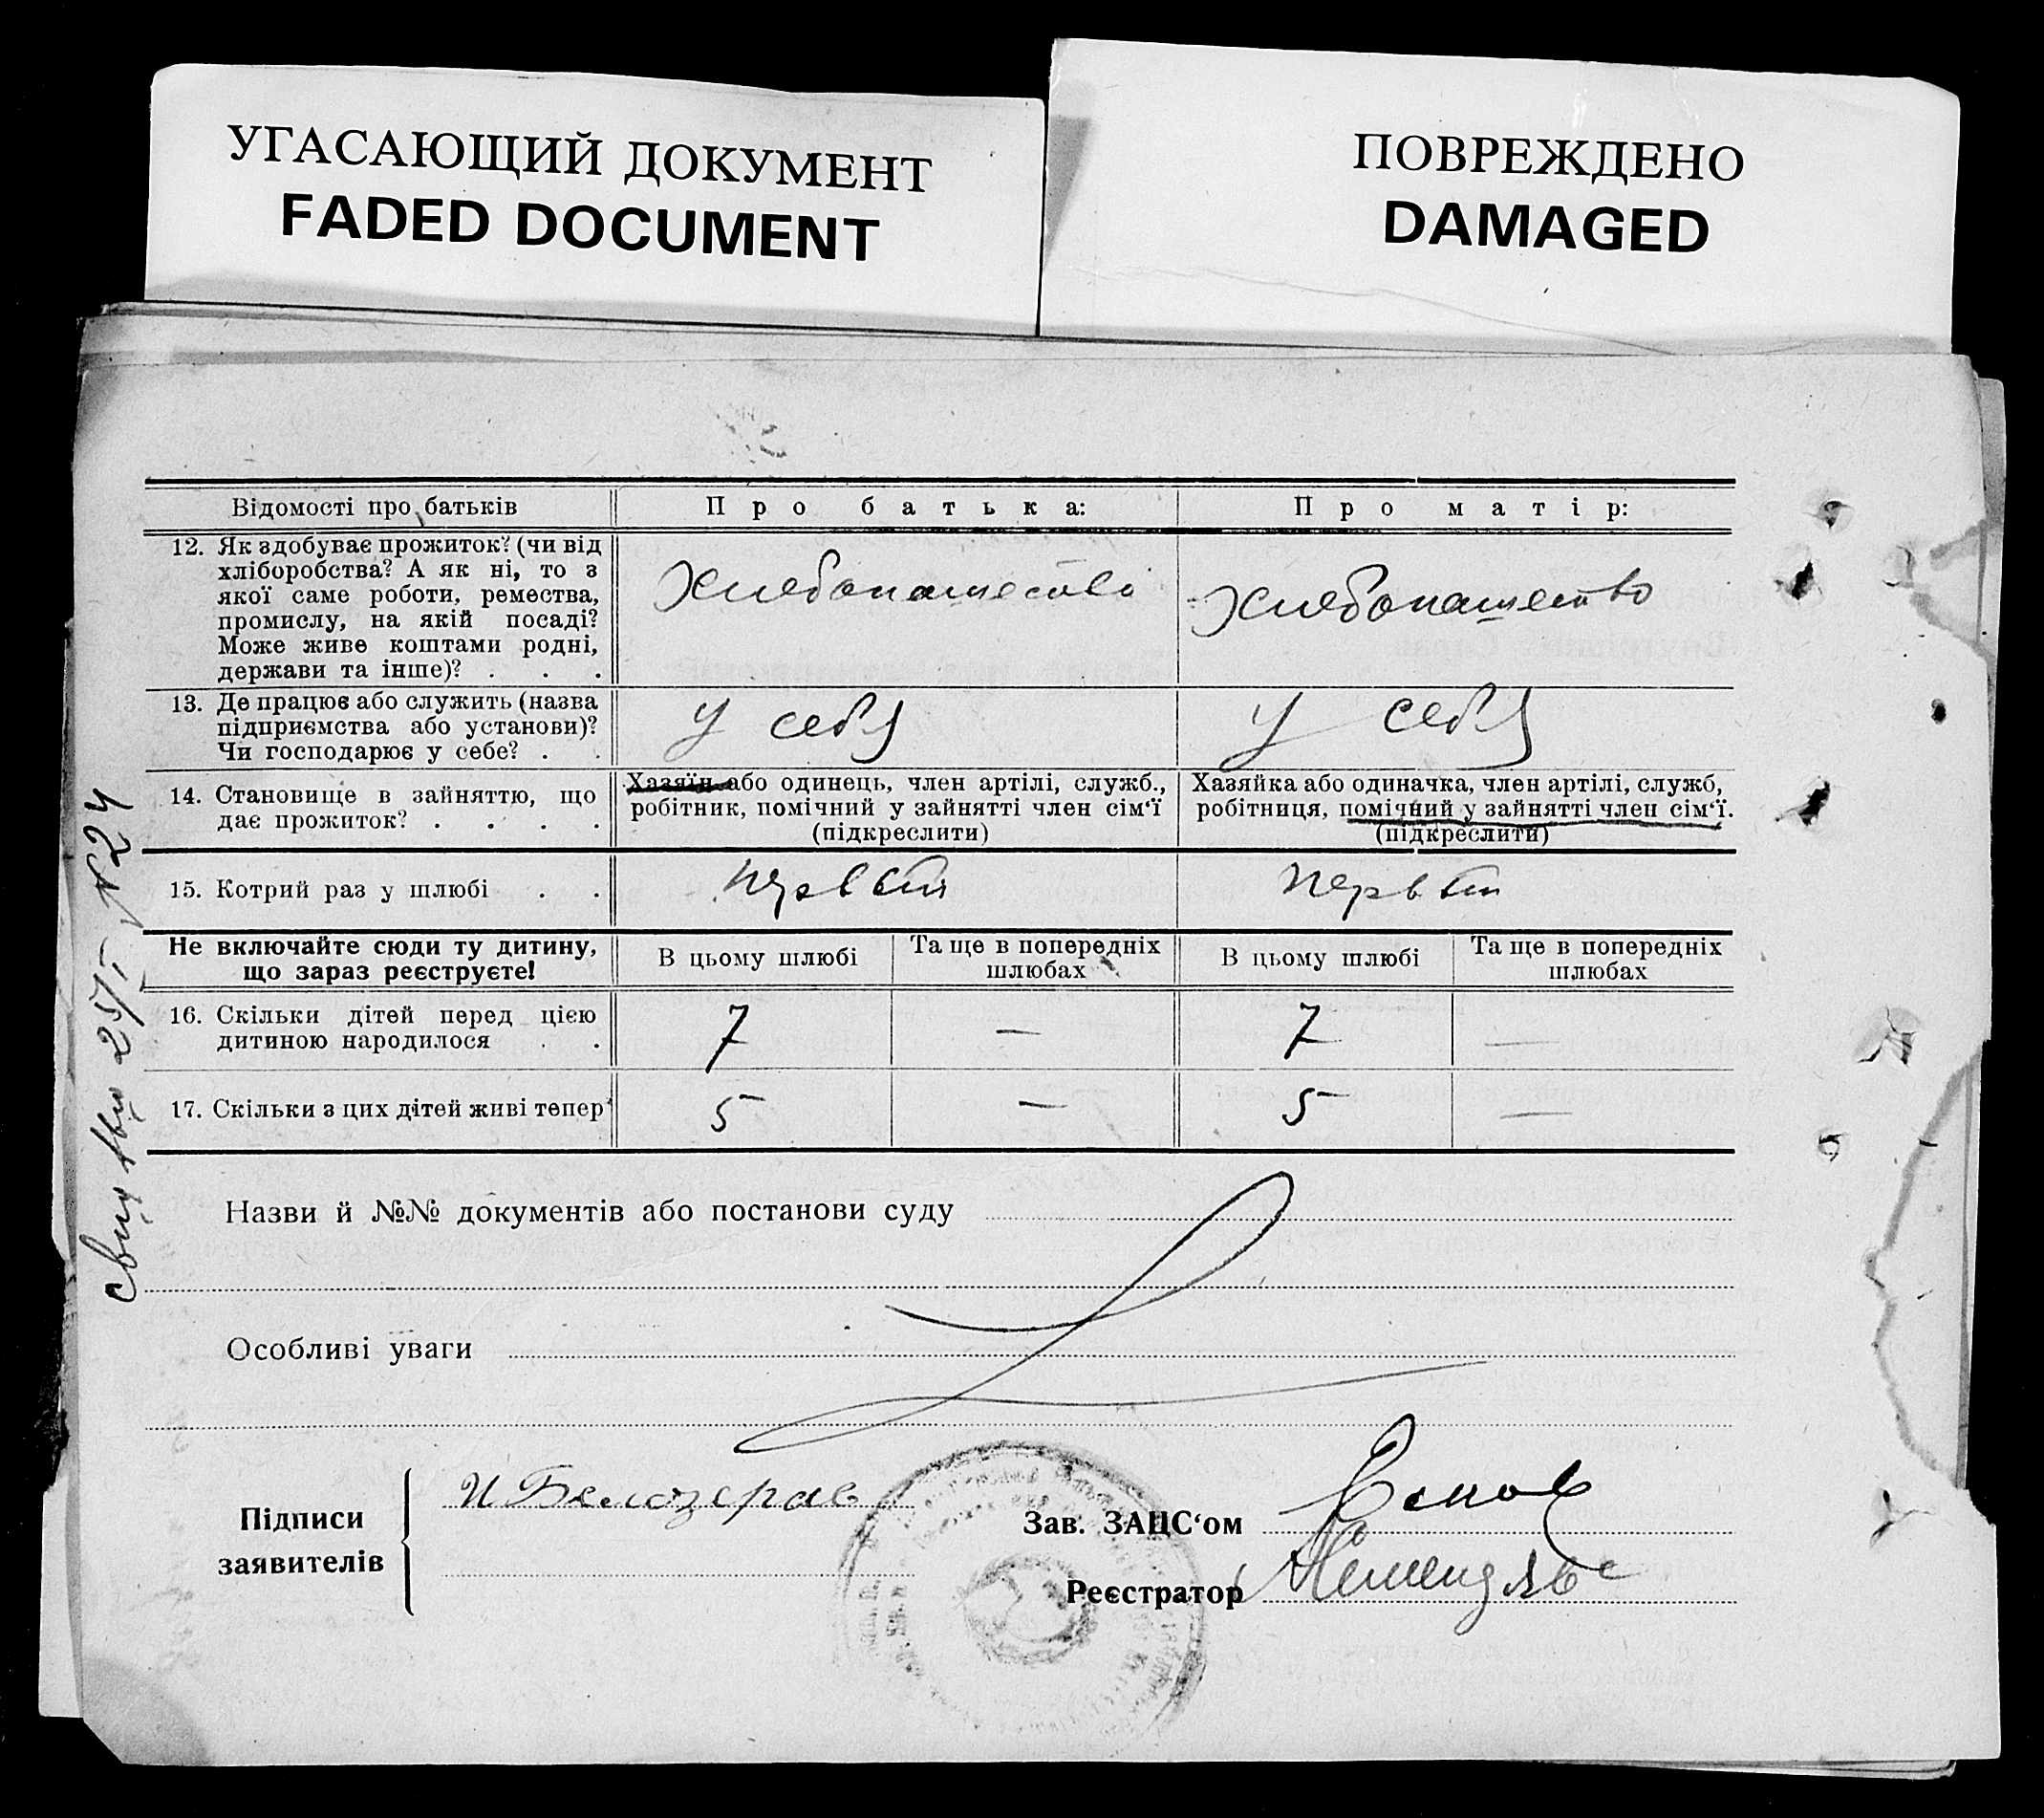 УГАСАЮЩИЙ ДОКУМЕНТ
FADED DOCUMENT
ПОВРЕЖДЕНО
DAMAGED
Відомості про батьків
Про батька:
Про матір:
12. Як здобуває прожиток? (чи від
хліборобства? А як ні, то з
якої саме роботи, ремества,
промислу, на якій посаді?
Може живе коштами родні,
держави та інше)? . . .
Хлебопашество
Хлебопашество
13. Де працює або служить (назва
підприємства або установи)?
Чи господарює у себе? . .
У себя
У себя
14. Становище в зайняттю, що
дає прожиток? . . . .
Хазяїн або одинець, член артілі, служб.,
робітник, помічний у зайнятті член сім‘ї
(підкреслити)
Хазяйка або одиначка, член артілі, служб,
робітниця, помічний у зайнятті член сім‘ї.
(підкреслити)
15. Котрий раз у шлюбі . .
Первый
Первый
Не включайте сюди ту дитину,
що зараз реєструєте!
В цьому шлюбі
Та ще в попередніх
шлюбах
В цьому шлюбі
Та ще в попередніх
шлюбах
16. Скільки дітей перед цією
дитиною народилося . .
7
—
7
—
17. Скільки з цих дітей живі тепер
5
—
5
—
Назви й №№ документів або постанови суду
Особливі уваги
Підписи
заявителів
И Белозеров
Зав. ЗАЦС‘ом
Реєстратор
№ 24